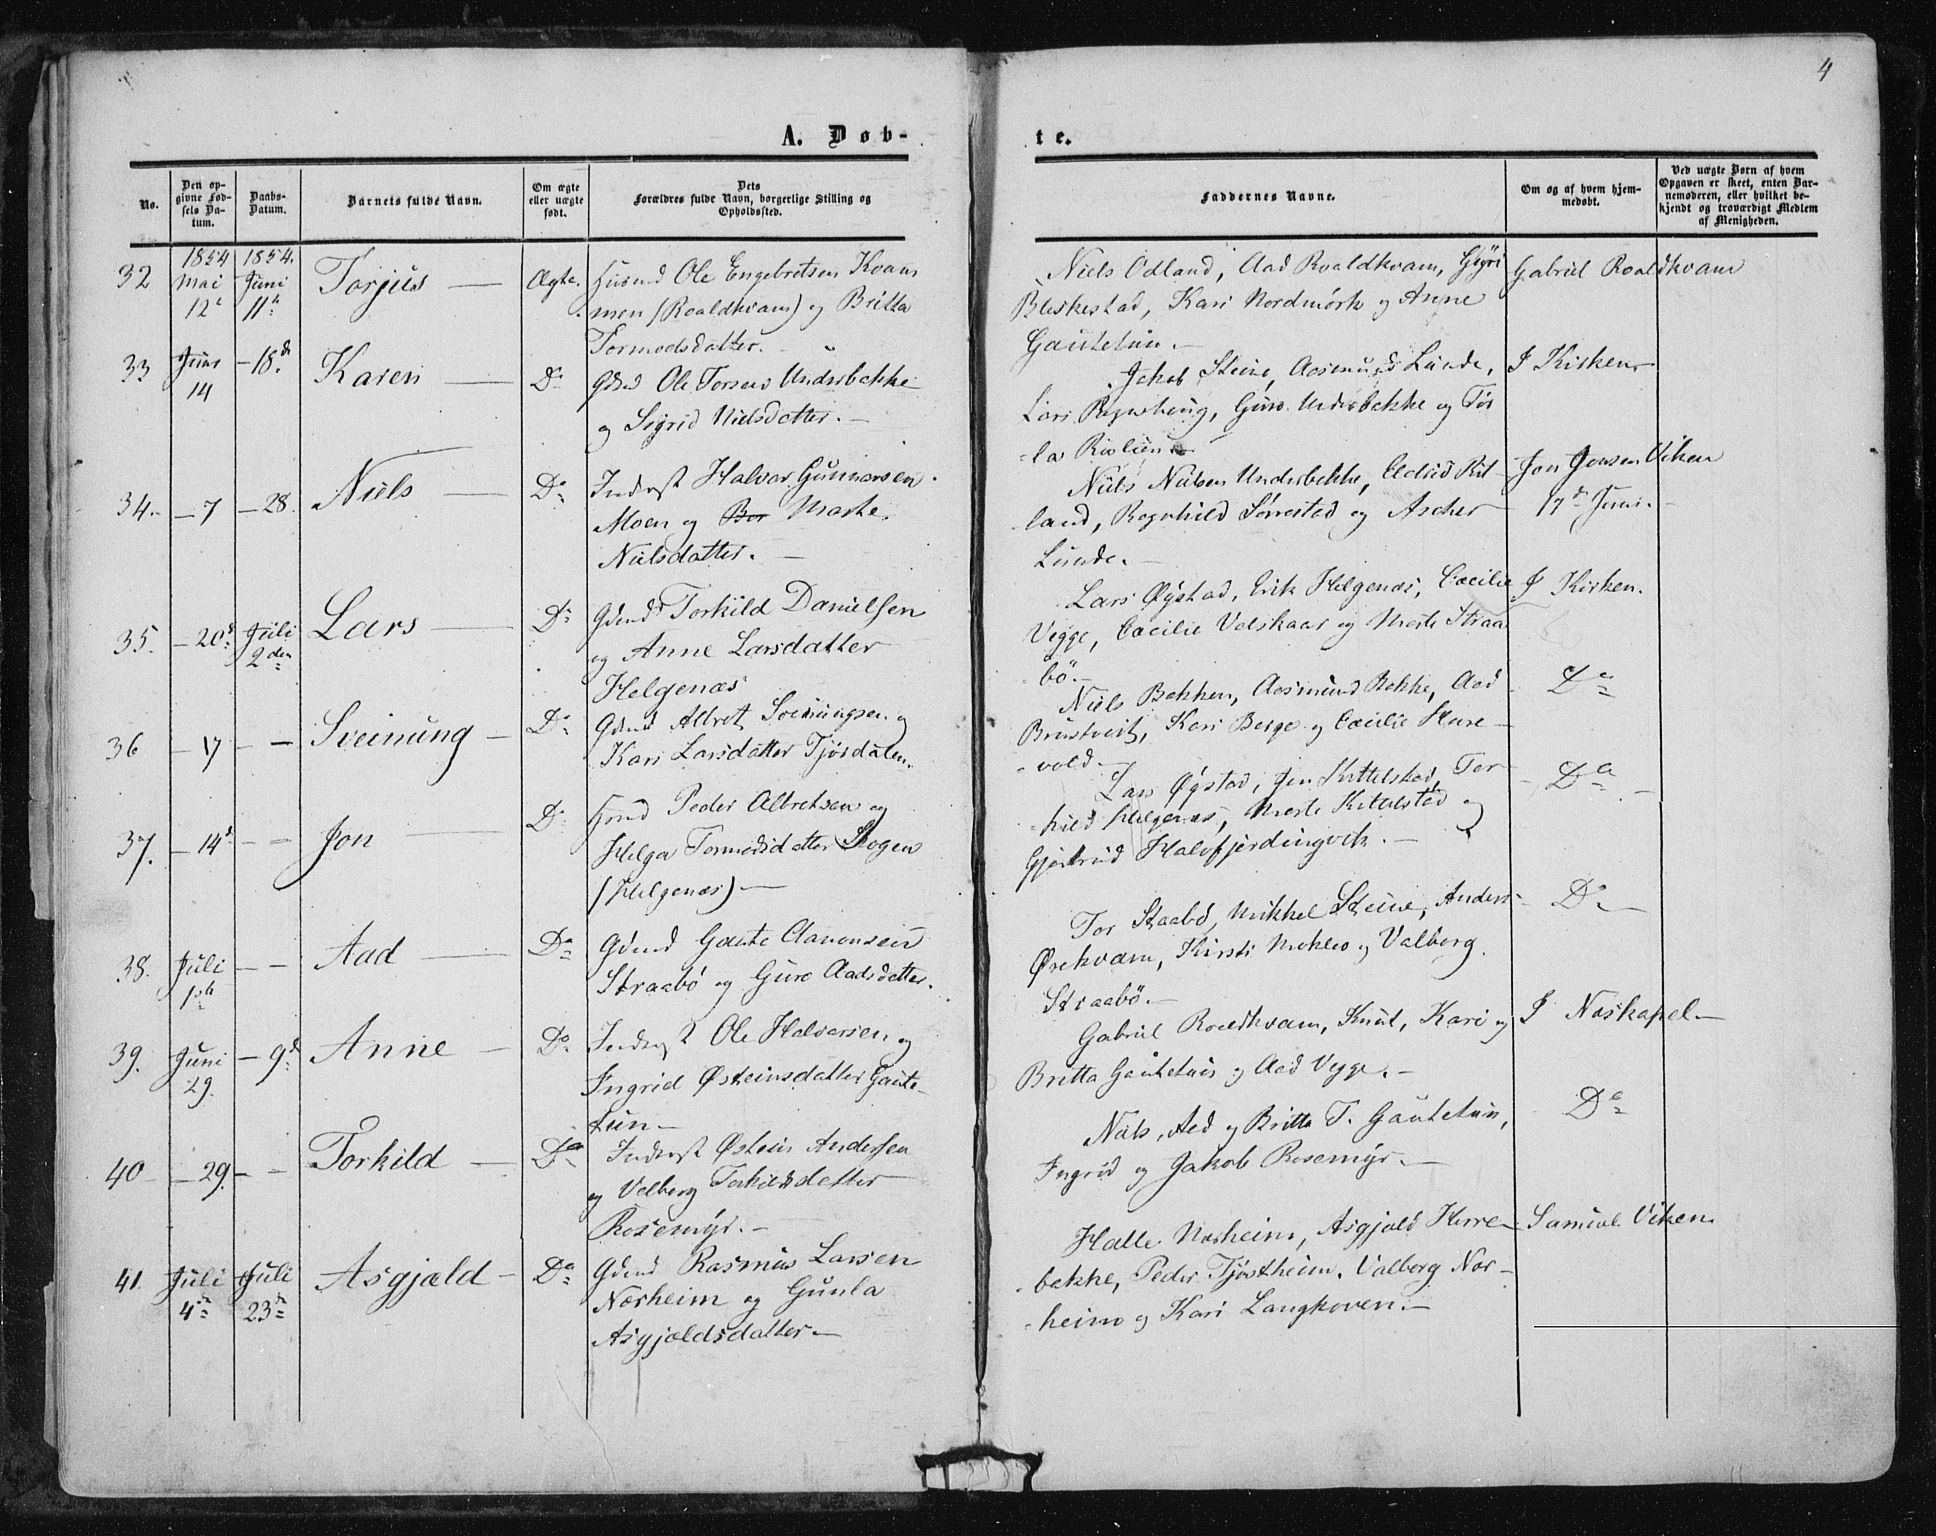 4
A. Døb-
te.
No.
Den op-
givne Fød-
sels Da-
tum.
Daabs-
Datum.
Barnets fulde Navn.
Om ægte
eller uægte
født.
Dets
Forældres fulde Navn, borgerlige Stilling og
Opholdssted.
Faddernes Navne.
Om og af hvem hjem-
medøbt.
Ved uægte Børn af hvem
Opgaven er skeet, enten Bar-
nemoderen, eller hvilket be-
kjendt og troværdigt Medlem
af Menigheden.
32 1854 Mai 12 1854. Juni 11 Torjus Ægte.
Ole Engebretsen Kvam
men (Roaldkvam) og Britta
Tormodsdatter.
Niels Odland, Aad Roaldkvam, Gyri
Bleskestad, Kari Nordmörk og Anne
Gautetun.
Gabriel Roaldkvam
33 Juni 14 - 18 Karen Do
Ole Torsens Underbekke
og Sigrid Nielsdatter.
Jakob Steine, Aasmund Lunde,
Lars Guro Underbekke og Tor
la
I Kirken
34. - 7 - 28. Niels Do
Inderst Halvor Gunnarsen
Moen og Bor Marte
Nielsdatter.
Niels Nielsen Underbekke, Rit
land, Ragnhild Sørrestad og Ascher
Lunde.
Jon Jonsen Viken
17 Juni.
35. - 20 Juli 2den Lars Do
Gdmd Torkild Danielsen
og Anne Larsdatter
Helgenæs
Lars Øystad, Erik Helgenæs, Cæcilie
Vegge, Cæcilie Valskaar og Marte Straa
bö.
I Kirken.
36 - 17 - - Sveinung Do
Gdmd Albret Sveinungsen og
Kari Larsdatter Tjösdalen.
Niels Bakken, Aasmund Bekke, Aad
Brustveit, Kari Berge og Cæcilie Hare
vold
Do
37. - 14 - - Jon Do
Peder Albretsen og
Helga Tormodsdatter Skogen
(Helgenæs)
Lars Øystad, Jon Kittelstad, Tor
kild Helgenæs, Marte Kittelstad og
Gjertrud Halvfjerdingvik.
Do
38. Juli 1ste - - Aad Do
Gdmd Gaute Clavensen
Straabø og Guro Aadsdatter.
Tor Straabö, Mikkel Steine, Anders
Ørekvam, Kirsti Mokleo og Valborg
Straabö
Do
39. Juni 29. - 9d Anne Do
Inderst Ole Halvorsen og
Ingrid Østeinsdatter Gaute-
tun
Gabriel Roaldkvam, Knut, Kari og
Britta Gautetun og Aad Vegge.
I Næskapel
40 - 29 - - Torkild Do
Inderst Østein Andersen
og Valborg Torkildsdatter
Rosemyr.
Niels, Aad og Britta T. Gautetun,
Ingrid og Jakob Rosemyr.
Do
41. Juli 4 Juli 23 Asgjæld Do
Gdmd Rasmus Larsen
Norheim og Gunla
Asgjældsdatter
Halle Norheim, Asgjæld Herre
bekke, Peder Tjøstheim, Valborg Nor-
heim og Kari Langhoven.
Samuel Viken